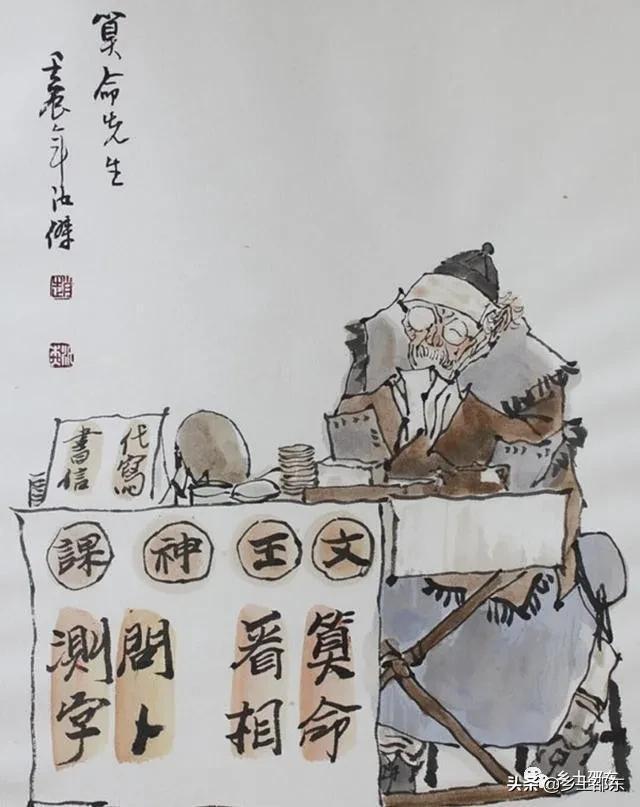 算命先生
壬辰年沁傑
代寫
書信
文王神課
算命
看相
問卜
測字
乡土邵东
头条@乡土邵东